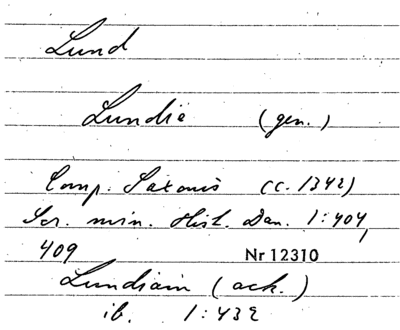 Lund
Lundie (gen.)
Comp. Saxonis (c. 1342)
Scr. min. Hist. Dan. 1:404,
409 Nr 12310
Lundiam (ack.)
ib. 1:432